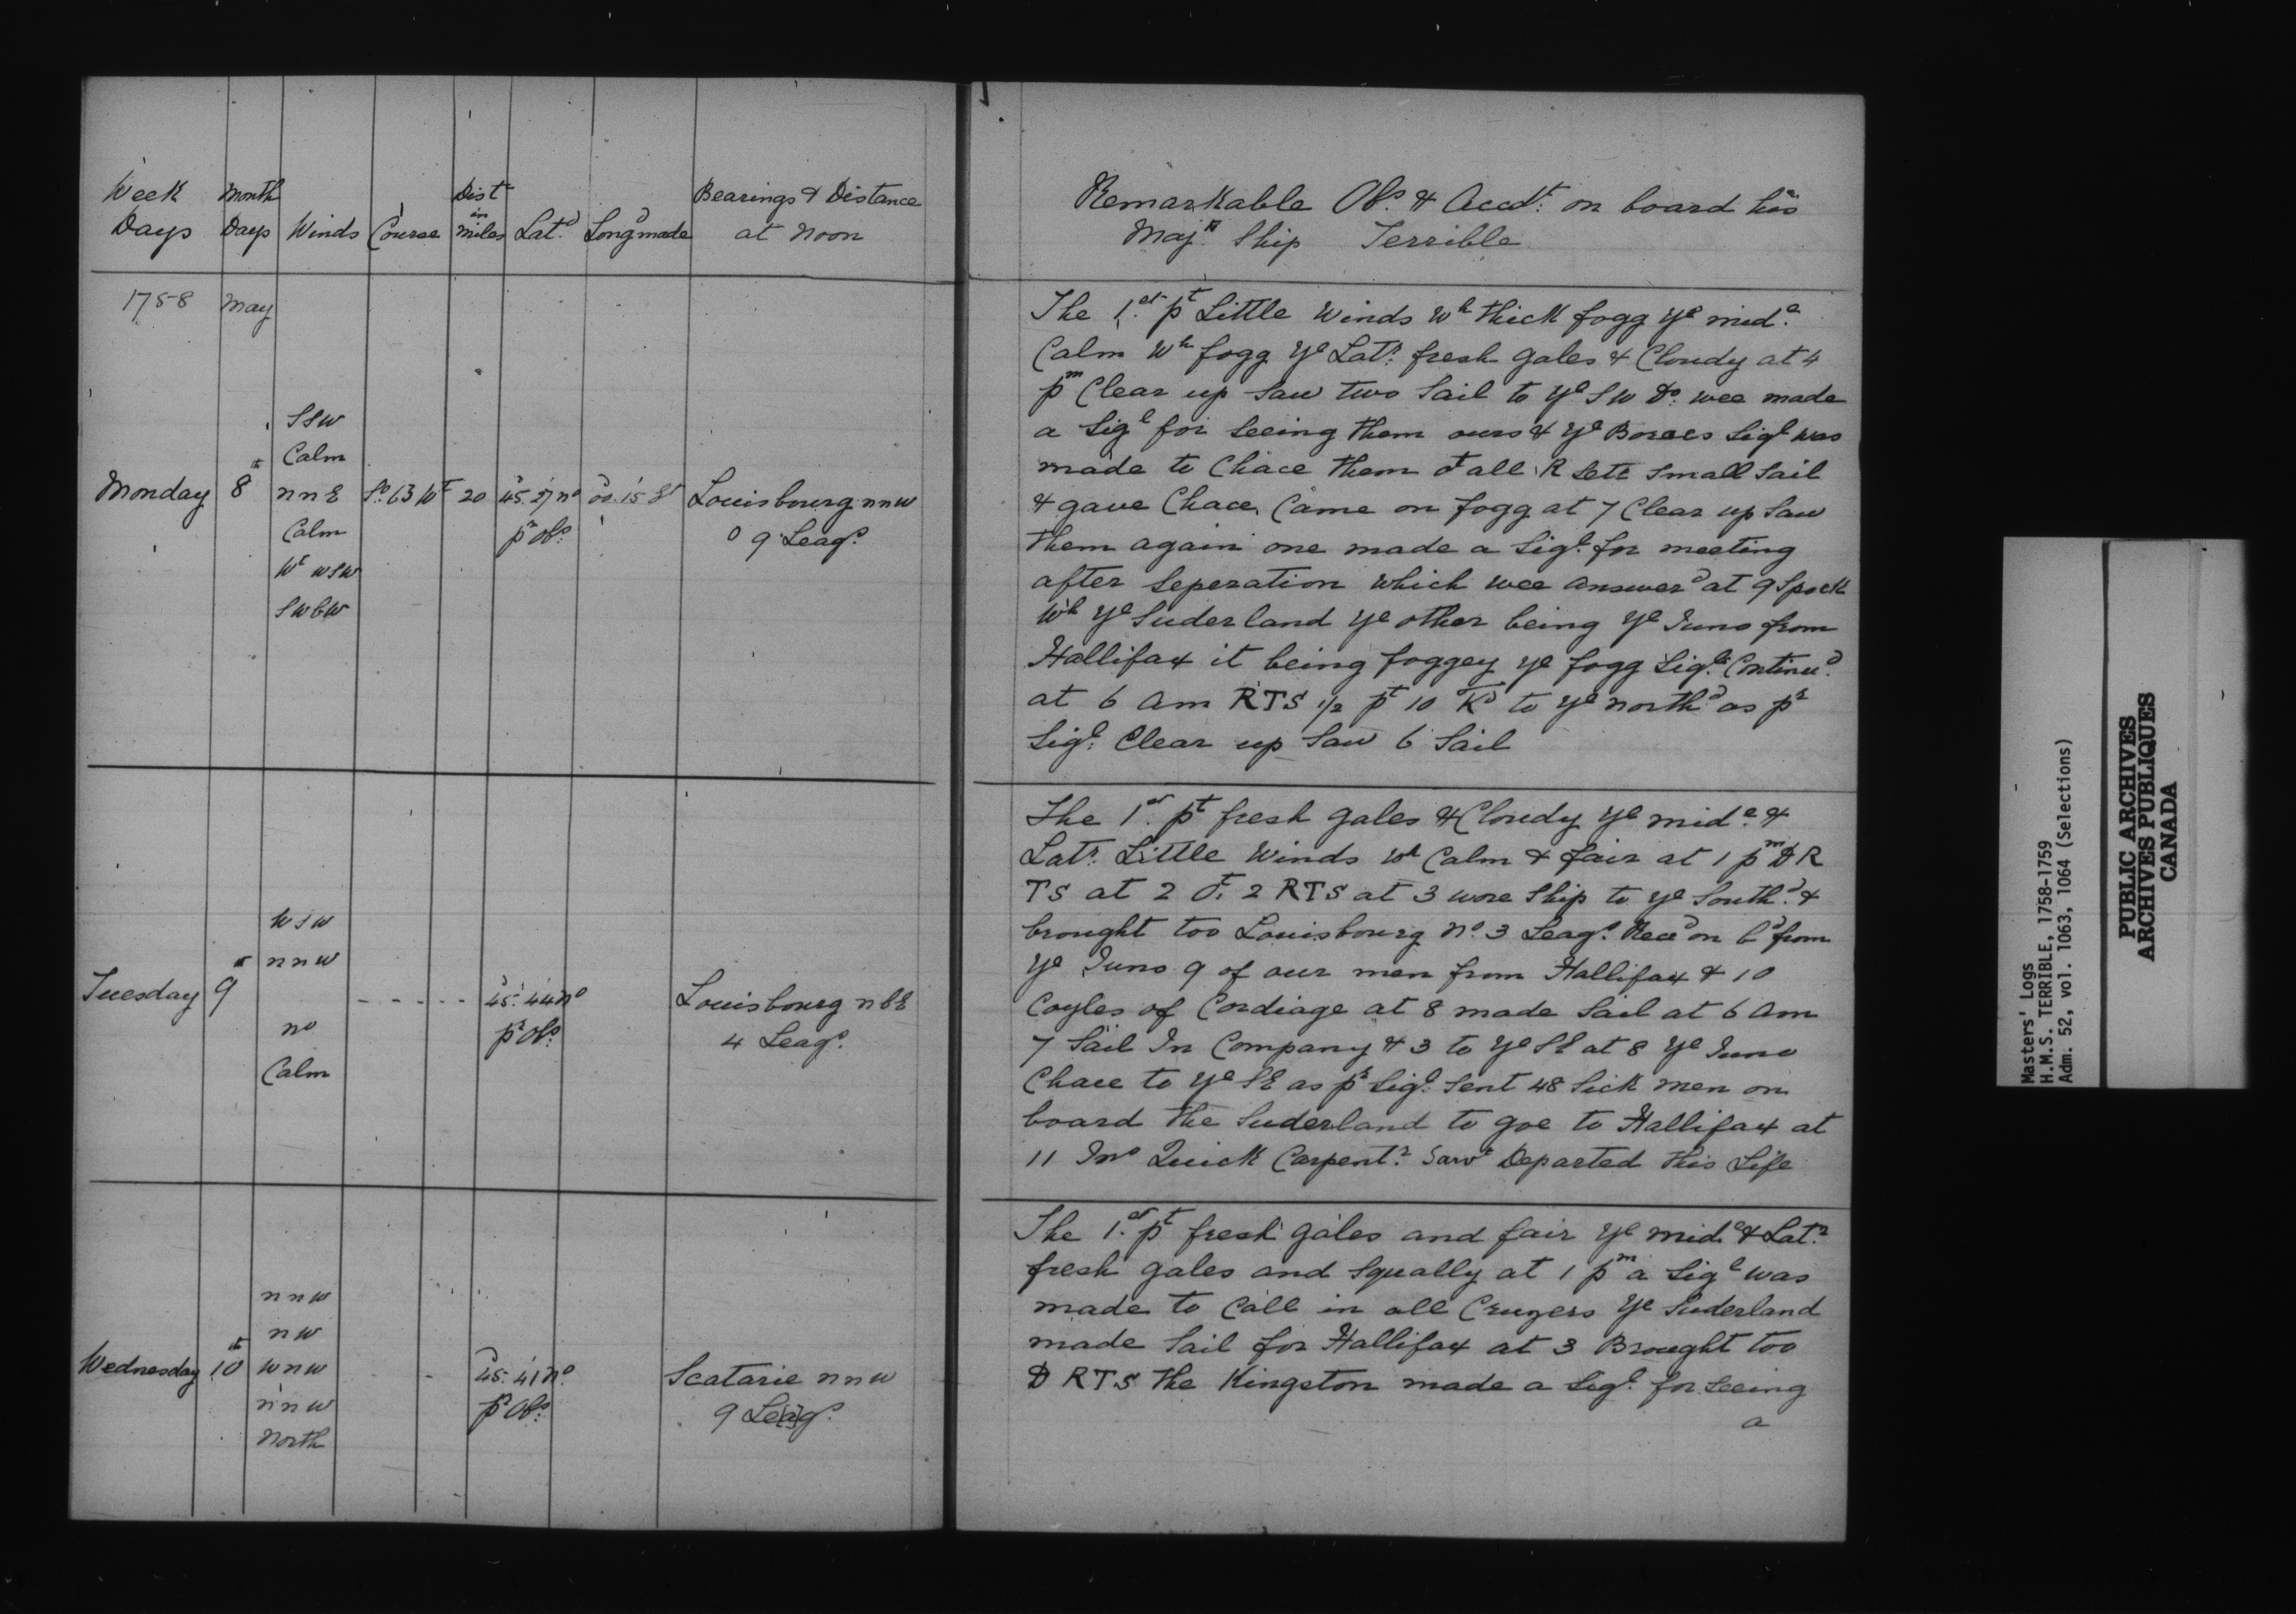 Week Days
Month Days
Winds
Course
Dist in miles
Lat.d
Long made
Bearings & Distance at Noon
1758 May
Monday 8th
SSW
Calm
nnE
Calm
Wt wsw
swbw
So. 63 Wt
20
45.27 no
pr Obs.
00.15 Et
Louisbourg nnw
0 9 Leags.
Tuesday 9th
wsw
nnw
no
Calm
- - - - -
45.44 no
pr Obs.
Louisbourg nbE
4 Leags.
Wednesday 10th
nnw
nw
wnw
nnw
North
-
45.41 no.
pr Obs.
Scatarie nnw
9 Leags.
Remarkable Obs. & Accdt: on board his
Maj.ts Ship Terrible
The 1st pt Little Winds Wh thick fogg Ye mid.e
Calm Wh fogg Ye Latr. fresh gales & Cloudy at 4
pm Clear up Saw two Sail to Ye SW Do. wee made
a Sigl for Seeing them ours & Ye Boreas Sigl was
made to Chace them out all R Sett Small Sail
& gave Chace Came on fogg at 7 Clear up Saw
them again one made a Sigl. for meeting
after Seperation which wee answerd at 9 Spock
Wh Ye Suderland Ye other being Ye Juno from
Hallifax it being foggey ye fogg Sigl. Continued.
at 6 am RTS 1/2 pt 10 Kd to Ye northd as pr
Sigl. Clear up Saw 6 Sail
The 1st. pt fresh gales & Cloudy Ye mid.e &
Latr. Little Winds Wh Calm & fair at 1 pm D R
TS at 2 ot. 2 RTS at 3 wore Ship to Ye Southd. &
brought too Louisbourg No. 3 Leags. Recd on bd from
Ye Juno 9 of our men from Hallifax & 10
Coyles of Cordiage at 8 made Sail at 6 am
7 Sail In Company & 3 to Ye SE at 8 Ye Juno
Chace to Ye SE as pr Sigl. Sent 48 Sick men on
board the Suderland to goe to Hallifax at
11 Jno Quick Carpentr. Sarvt Departed this Life
The 1st. pt fresh gales and fair Ye mide & Latr.
fresh gales and Squally at 1 pm a Sigl was
made to Call in all Cruzers Ye Suderland
made Sail for Hallifax at 3 Brought too
D RTS the Kingston made a Sigl. for Seeing
a
Masters' Logs
H.M.S. TERRIBLE, 1758-1759
Adm. 52, vol. 1063, 1064 (Selections)
PUBLIC ARCHIVES
ARCHIVES PUBLIQUES
CANADA